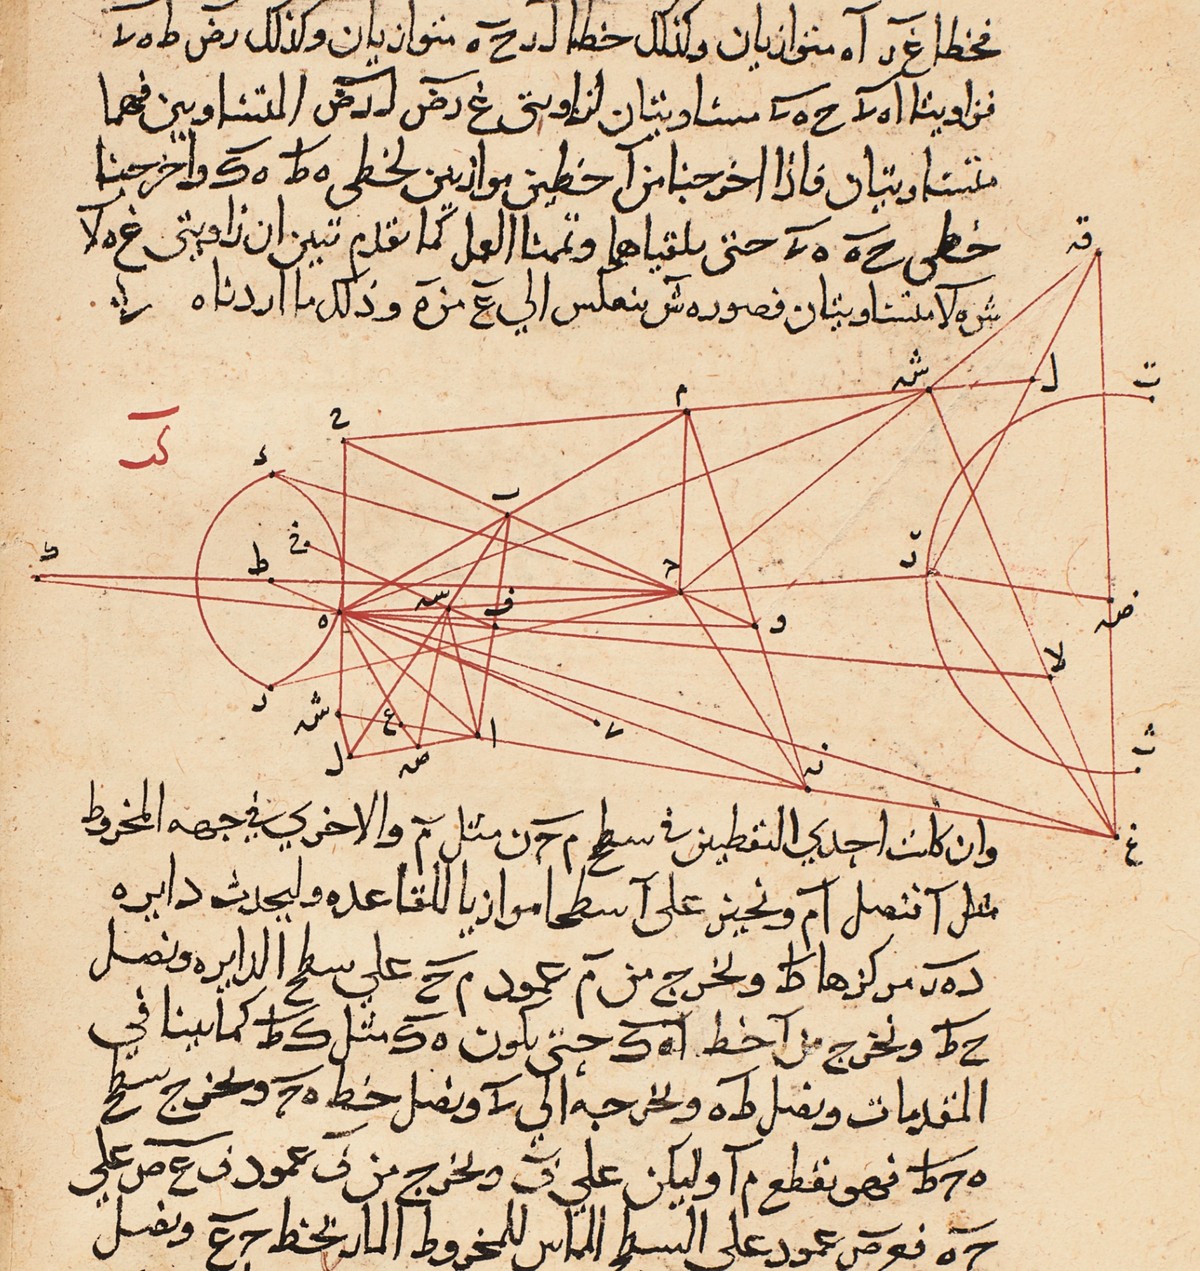 فخطا غ ر آه متوازيان وكذلك خطا لر ح ه متوازيان وكذلك رض ط ه
فزاويتا اه ح ه متساويتان لزاويتى غ رض ل رض المتساويتين فهما
متساويتان فاذا اخرجنا من آ خطين موازيين لخطى ه ط ه ك واخرجنا
خطى ح ه ه حتى يلقياهما وتممنا العمل كما تقدم تبين ان زاويتى غ ه لا
ش ه لا متساويتان فصوره ش ينعكس الي غ من ه وذلك ما اردناه
قـ
ل
ت
شـ
م
ح
كب
د
ب
خ
ط
ك
ح
ر
ضـ
سـ
ف
و
ه
لا
ز
شـ
ع
ا
ل
صـ
ن
ث
غ
وان كانت احدي النقطتين في سطح م ح ن مثل م والاخري في جهه المخروط
مثل آ فنصل آم ونجيز على آ سطحا موازيا للقاعده وليحدث دايره
د ه ز مركزها ط ونخرج من م عمود م خ علي سطح الدايره ونصل
خ ط ونخرج من آ خط اه ك حتى يكون ه ك مثل ك ط كما بينا في
المقدمات ونصل ط ه ونخرجه الي ونصل خط ه ح ونخرج سطح
ه ح ط فهو يقطع م آ وليكن علي ف ونخرج من ف عمود ف ع ص علي
ح ه فع ص عمود على السطح المماس للمخروط المار بخط ح ع ونصل